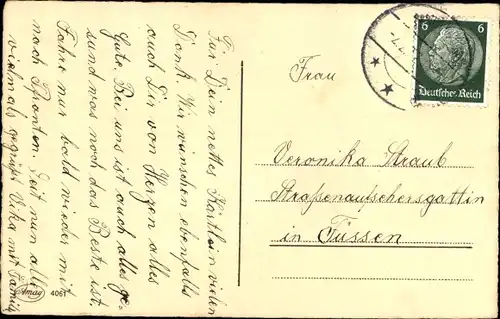 Für Dein nettes Kärtlein vielen
Dank. Wir wünschen ebenfalls
auch Dir von Herzen alles
Gute. Bei uns ist auch alles ge-
sund was noch das Beste ist.
Fahre nur bald wieder mit
nach Pfronten. Seit nun alle
vielmals gegrüßt mit Famil
Frau
Veronika Straub
Straßenaufsehersgattin
in Füssen
6 6
Deutsches Reich
Amag 4061